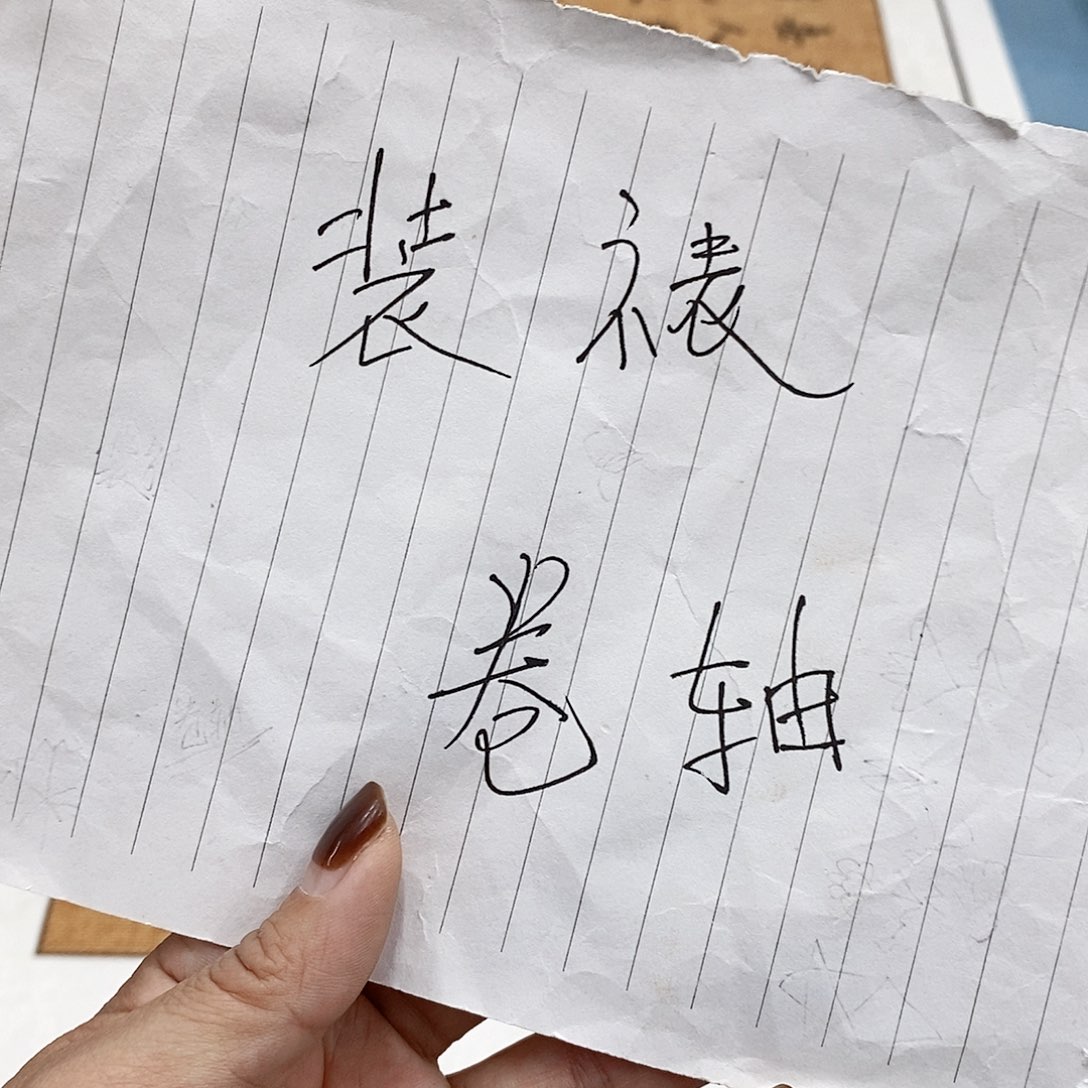 装裱
卷轴